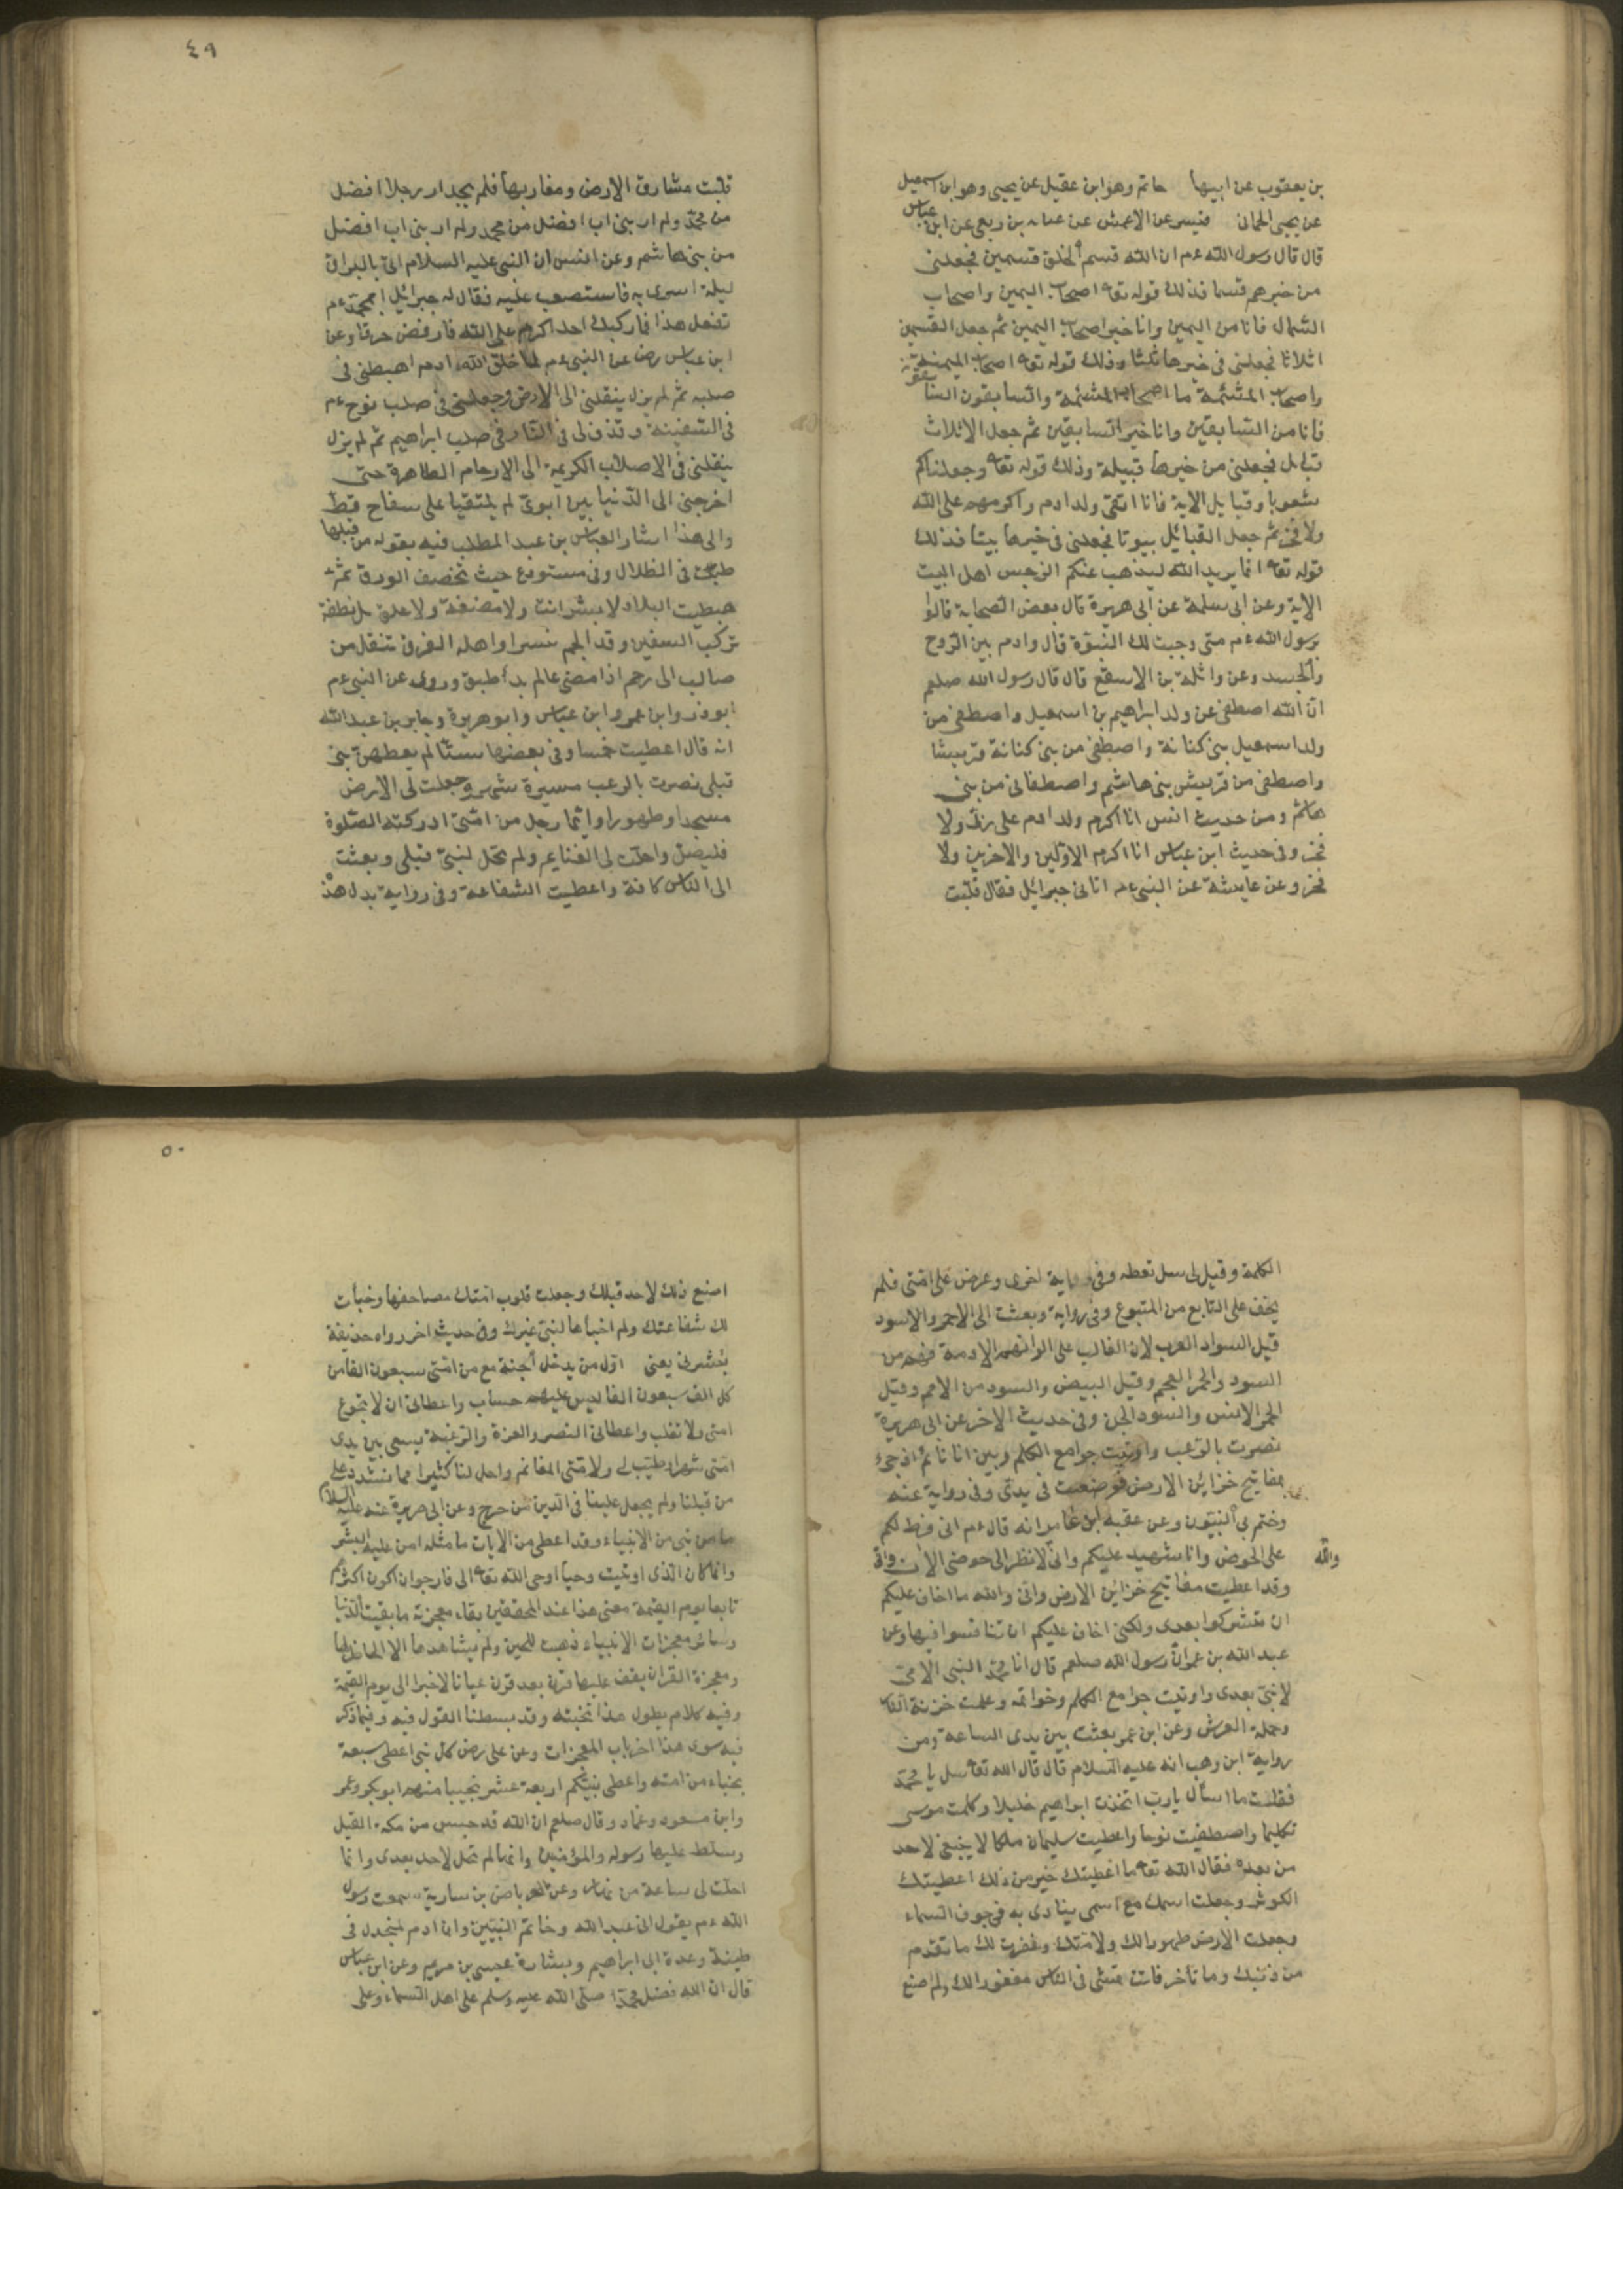 بن يعقوب عن ابيها حاتم وهو ابن عقيل عن يحيى وهو ابن اسمعيل
عن يحيى الحمانى قيس عن الاعمش عن عبايه بن ربعى عن ابن عباس
قال قال رسول الله ءم ان الله قسم الخلق قسمين فجعلنى
من خيرهم قسما فذلك قوله تعا اصحاب اليمين واصحاب
الشمال فانا من اليمين وانا خير اصحاب اليمين ثم جعل القسمين
اثلاثا فجعلنى فى خيرها ثلثا وذلك قوله تعا اصحاب الميمنة
واصحاب المشئمة ما اصحاب المشئمة والسابقون السابقون
فانا من السابقين وانا خير السابقين ثم جعل الاثلاث
قبائل فجعلنى من خيرها قبيلة وذلك قوله تعا وجعلناكم
شعوبا وقبايل الاية فانا اتقى ولد ادم واكرمهم على الله
ولا فخر ثم جعل القبائل بيوتا فجعلنى فى خيرها بيتا فذلك
قوله تعا انما يريد الله ليذهب عنكم الرجس اهل البيت
الاية وعن ابى سلمة عن ابى هريرة قال بعض الصحابة قالوا
يرسول الله ءم متى وجبت لك النبوة قال وادم بين الروح
والجسد وعن واثلة بن الاسقع قال قال رسول الله صلعم
ان الله اصطفى عن ولد ابراهيم بن اسمعيل واصطفى من
ولد اسمعيل بنى كنانة واصطفى من بنى كنانة قريشا
واصطفى من قريش بنى هاشم واصطفانى من بنى
هاشم ومن حديث انس انا اكرم ولد ادم على ربى ولا
فخر وفى حديث ابن عباس انا اكرم الاولين والاخرين ولا
فخر وعن عايشة عن النبى ءم اتانى جبرائل فقال قلبت
٤٩
قلبت مشارق الارض ومغاربها فلم يجد ار رجلا افضل
من محمد ولم ار بنى اب افضل من محمد ولم ار بنى اب افضل
من بنى هاشم وعن انس ان النبى عليه السلام اتى بالبراق
ليلة اسرى به فاستصعب عليه فقال له جبرائل ابمحمد ءم
تفعل هذا فما ركبك احد اكرم على الله فارفض حرقا وعن
ابن عباس رض عن النبى ءم لما خلق الله ادم اهبطنى فى
صلبه ثم لم يزل ينقلنى الى الارض وجعلنى فى صلب نوح ءم
فى السفينة وقذف لى فى النار فى صلب ابراهيم ثم لم يزل
ينقلنى فى الاصلاب الكريمة الى الارحام الطاهرة حتى
اخرجنى الى الدنيا بين ابوى لم يلتقيا على سفاح قط
والى هذا اشار العباس بن عبد المطلب فيه بقوله من قبلها
طبت فى الظلال وفى مستودع حيث تخصف الورق ثم
هبطت البلاد لا بشر انت ولا مضغة ولا علق بل نطفة
تركب السفين وقد الجم نسرا واهله الغرق تنقل من
صالب الى رحم اذا مضى عالم بدأ طبق وروى عن النبى ءم
ابو ذر وابن عمر وابن عباس وابو هريرة وجابر بن عبد الله
انه قال اعطيت خمسا وفى بعضها ستا لم يعطهن نبى
قبلى نصرت بالرعب مسيرة شهر وجعلت لى الارض
مسجدا وطهورا وايما رجل من امتى ادركته الصلوة
فليصل واحلت لى الغنايم ولم تحل لنبى قبلى وبعثت
الى الناس كافة واعطيت الشفاعة وفى رواية بدل هذه
الكلمة وقيل لى سل تعطه وفى رواية اخرى وعرض على امتى فلم
يخف على التابع من المتبوع وفى رواية وبعثت الى الاحمر والاسود
قيل السواد العرب لان الغالب على الوانهم الادمة فهم من
السود والحمر العجم وقيل البيض والسود من الامم وقيل
الحمر الانس والسود الجن وفى حديث الاخر عن ابى هريرة
نصرت بالرعب واوتيت جوامع الكلم وبين انا نائم اذ جىء
بمفاتيح خزائن الارض فوضعت فى يدى وفى رواية عنه
وختم بى النبيون وعن عقبة ابن عامر انه قال ءم انى فرط لكم
على الحوض وانا شهيد عليكم وانى لانظر الى حوضى الان وانى
والله
وقد اعطيت مفاتيح خزائن الارض وانى والله ما اخاف عليكم
ان تشركوا بعدى ولكنى اخاف عليكم ان تنافسوا فيها وعن
عبد الله بن عمر وان رسول الله صلعم قال انا محمد النبى الامى
لا نبى بعدى واوتيت جوامع الكلم وخواتمه وعلمت خزنة النار
وحملة العرش وعن ابن عمر بعثت بين يدى الساعة ومن
رواية ابن وهب انه عليه السلام قال قال الله تعا سل يا محمد
فقلت ما اسأل يا رب اتخذت ابراهيم خليلا وكلمت موسى
تكليما واصطفيت نوحا واعطيت سليمان ملكا لا ينبغى لاحد
من بعده فقال الله تعا ما اعطيتك خير من ذلك اعطيتك
الكوثر وجعلت اسمك مع اسمى ينادى به فى جوف السماء
وجعلت الارض طهورا لك ولامتك وغفرت لك ما تقدم
من ذنبك وما تأخر فانت تمشى فى الناس مغفورا لك ولم اصنع
٥٠
اصنع ذلك لاحد قبلك وجعلت قلوب امتك مصاحفها وخبأت
لك شفاعتك ولم اخبأها لنبى غيرك وفى حديث اخر رواه حذيفة
بشرنى يعنى اول من يدخل الجنة مع من امتى سبعون الفا من
كل الف سبعون الفا ليس عليهم حساب واعطانى ان لا تجوع
امتى ولا تغلب واعطانى النصر والعزة والرعب يسعى بين يدى
امتى شهرا وطيب لى ولامتى المغانم واحل لنا كثيرا مما شدد على
من قبلنا ولم يجعل علينا فى الدين من حرج وعن ابى هريرة عنه عليه السلام
ما من نبى من الانبياء وقد اعطى من الايات ما مثله امن عليه البشر
وانما كان الذى اوتيت وحيا اوحى الله تعا الى فارجو ان اكون اكثرهم
تابعا يوم القيمة معنى هذا عند المحققين بقاء معجزته ما بقيت الدنيا
وسائر معجزات الانبياء ذهبت للحين ولم يشاهدها الا الحاضر لها
ومعجزة القران يقف عليها قرن بعد قرن عيانا لا خبرا الى يوم القيمة
وفيه كلام يطول هذا نخبته وقد بسطنا القول فيه وفيما ذكر
فيه سوى هذا اخر باب المعجزات وعن على رض كل نبى اعطى سبعة
نجباء من امته واعطى نبيكم اربعة عشر نجيبا منهم ابو بكر وعمر
وابن مسعود وعمار وقال صلعم ان الله قد حبس من مكة الفيل
وسلط عليها رسوله والمؤمنين وانها لم تحل لاحد بعدى وانما
احلت لى ساعة من نهار وعن العرباض بن سارية سمعت رسول
الله ءم يقول انى عبد الله وخاتم النبيين وان ادم لمنجدل فى
طينة وعدة ابى ابراهيم وبشارة عيسى بن مريم وعن ابن عباس
قال ان الله فضل محمدا صلى الله عليه وسلم على اهل السماء وعلى